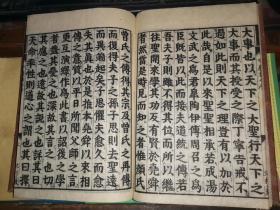 大事也以天下之大聖行天下之
大事而其授受之際丁寧告戒不
過如此則天下之理豈有以加於
此哉自是以來聖聖相承若成湯
文武之爲君臯陶伊傅周召之爲
臣既皆以此而接夫道統之傳若
吾夫子則雖不得其位而所以繼
往聖開來學其功反有賢於堯舜
者然當是時見而知之者惟顔氏
曾氏之傳得其宗及曾氏之再傳
而復得夫子之孫子思則去聖遠
而異端起矣子思懼夫愈久而愈
失其眞也於是推本堯舜以來相
傳之意質以平日所聞父師之言
更互演繹作爲此書以詔後之學
者蓋其憂之也深故其言之也切
其慮之也遠故其說之也詳其曰
天命率性則道心之謂也其曰擇